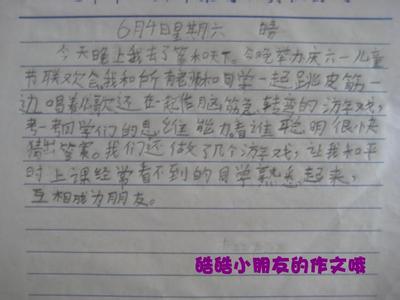 6月4日星期六 晴
今天晚上我去了箸和天下。今晚举办庆六一儿童
节联欢会。我和所有老师和同学一起跳皮筋一
边唱着儿歌还在一起作脑筋急转弯的游戏,
考一考同学们的思维能力看谁聪明很快
猜出答案。我们还做了几个游戏,让我和平
时上课经常看不到的同学熟悉起来,
互相成为朋友。
皓皓小朋友的作文哦